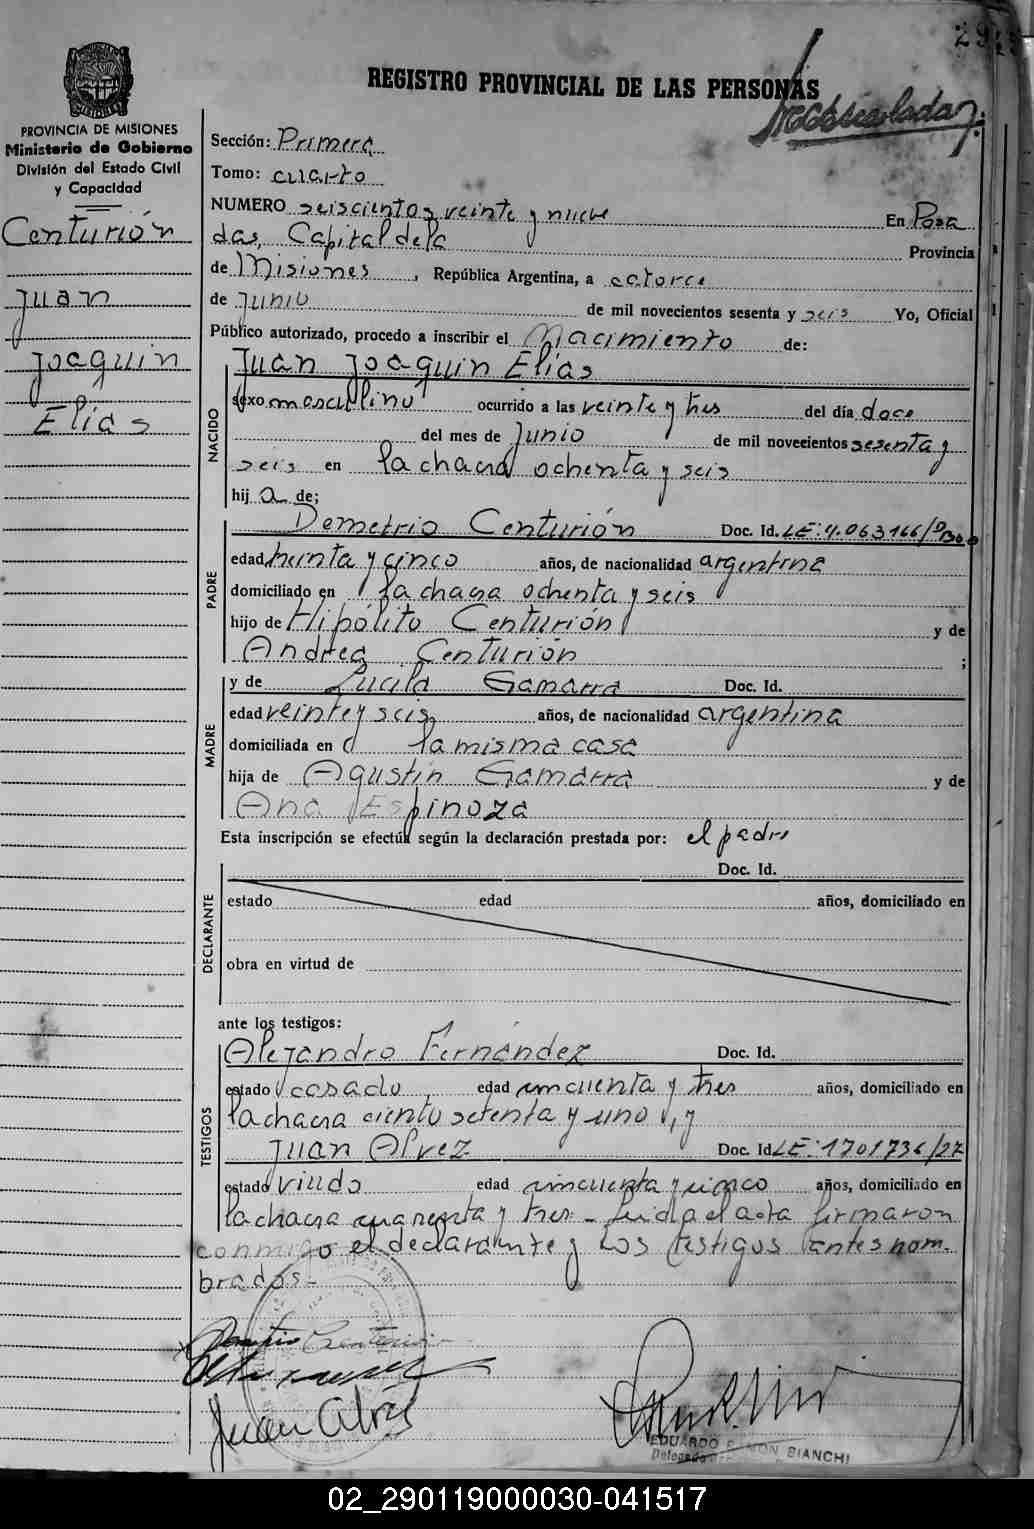 REGISTRO PROVINCIAL DE LAS PERSONAS
PROVINCIA DE MISIONES
Ministerio de Gobierno
División del Estado Civil
y Capacidad
Centurión
Juan
Joaquin
Elias
Sección: Primera
Tomo: cuarto
NUMERO seiscientos veinte y nueve En Posa
das, Capital de la Provincia
de Misiones, República Argentina, a catorce
de Junio de mil novecientos sesenta y seis Yo, Oficial
Público autorizado, procedo a inscribir el Nacimiento de:
NACIDO
Juan Joaquin Elias
sexo masculino ocurrido a las veinte y tres del día doce
del mes de Junio de mil novecientos sesenta y
seis en la chacra ochenta y seis
hij a de;
PADRE
Demetrio Centurión Doc. Id. LE: 4.063166/
edad treinta y cinco años, de nacionalidad argentina
domiciliado en la chacra ochenta y seis
hijo de Hipólito Centurión y de
Andrea Centurión ;
MADRE
y de Lucila Gamarra Doc. Id.
edad veinte y seis años, de nacionalidad argentina
domiciliada en la misma casa
hija de Agustín Gamarra y de
Ana Espinoza
Esta inscripción se efectúa según la declaración prestada por: el padre
DECLARANTE
Doc. Id.
estado edad años, domiciliado en
obra en virtud de
ante los testigos:
TESTIGOS
Alejandro Fernández Doc. Id.
estado casado edad cincuenta y tres años, domiciliado en
la chacra ciento setenta y uno, y
Juan Alvez Doc. Id LE: 1701736/27
estado viudo edad cincuenta y cinco años, domiciliado en
la chacra cuarenta y tres - Leida el acta firmaron
conmigo el declarante y los testigos antes nom-
brados-
Juan Alves
EDUARDO RAMON BIANCHI
02_290119000030-041517